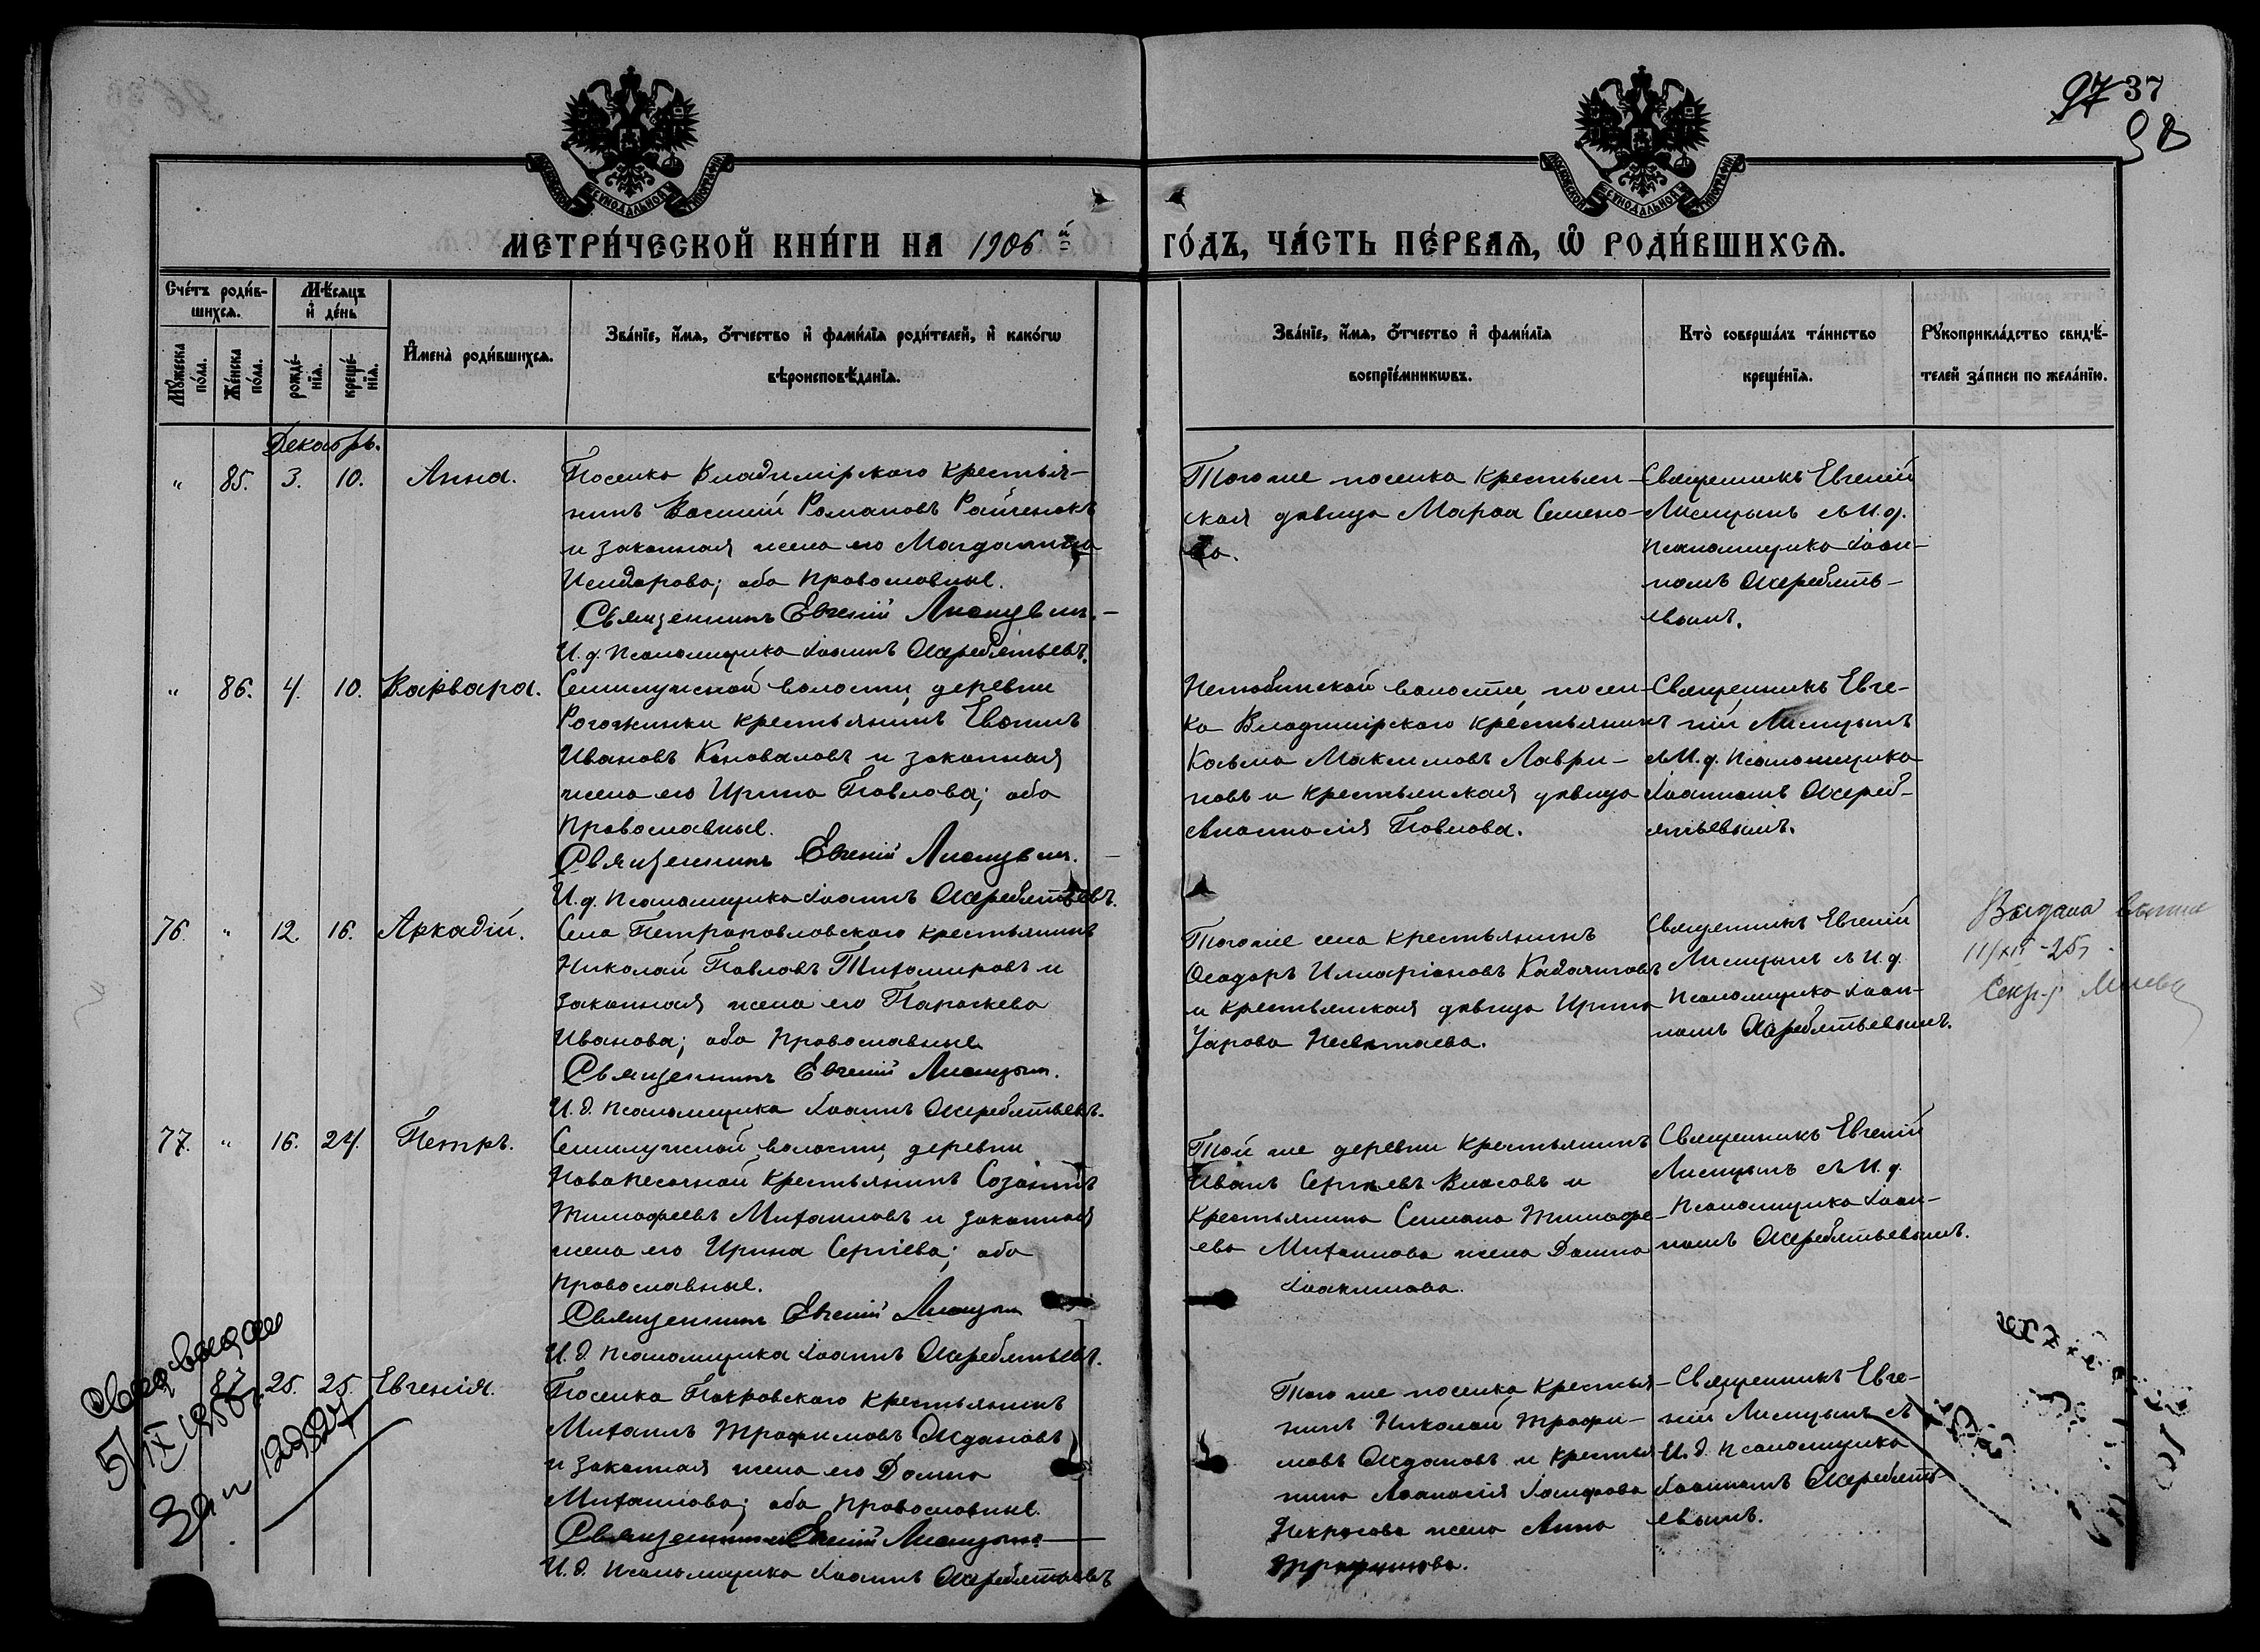 97 37
98
МОСКОВСКОЙ СѴНОДАЛЬНОЙ ТИПОГРАФІИ
МОСКОВСКОЙ СѴНОДАЛЬНОЙ ТИПОГРАФІИ
МЕТРИ́ЧЕСКОЙ КНИ́ГИ НА 1906 й
ГО́ДЪ, ЧА́СТЬ ПЕ́РВАѦ, Ѡ҆ РОДИ́ВШИХСѦ.
Сче́тъ роди́в-
шихсѧ.
Мꙋ́жеска по́ла.
Же́нска по́ла.
Мѣ́сѧцъ
и҆ де́нь
рожде́-
нїѧ.
креще́-
нїѧ.
И҆мена̀ роди́вшихсѧ.
Зва́нїе, и҆́мѧ, ѻ҆́тчество и҆ фами́лїѧ роди́телей, и҆ како́гѡ
вѣроисповѣ́данїѧ.
Зва́нїе, и҆́мѧ, ѻ҆́тчество и҆ фами́лїѧ
воспрїе́мникѡвъ.
Кто̀ соверша́лъ та́инство
креще́нїѧ.
Рꙋкоприкла́дство свидѣ́-
телей за́писи по жела́нїю.
Декабрь.
" 85. 3. 10. Анна.
Поселка Владимірскаго крестья-
нинъ Василій Романовъ Райченокъ
и законная жена его Магдалина
Исидорова; оба православные.
Священникъ Евгеній Лисицын.
И. д. псаломщика Іоаннъ Жеребятьевъ.
Того же поселка крестьян-
ская дѣвица Марѳа Семено-
ва.
Священникъ Евгеній
Лисицынъ съ И. д.
псаломщика Іоан-
номъ Жеребять-
евымъ.
" 86. 4. 10. Варвара.
Семилужной волости, деревни
Рогожинки крестьянинъ
Ивановъ Коноваловъ и законная
жена его Ирина Павлова; оба
православные.
Священникъ Евгеній Лисицын.
И. д. псаломщика Іоаннъ Жеребятьевъ.
волости посел-
ка Владимірскаго крестьянинъ
Козьма Максимовъ Лаври-
новъ и крестьянская дѣвица
Анастасія Павлова.
Священникъ Евге-
ній Лисицынъ
съ И. д. псаломщика
Іоанномъ Жереб-
ятьевымъ.
76. " 12. 16. Аркадій.
Села Петропавловскаго крестьянинъ
Николай Павловъ Тихомировъ и
законная жена его Параскева
Иванова; оба православные
Священникъ Евгеній Лисицын.
И. д. псаломщика Іоаннъ Жеребятьевъ.
Того же села крестьянинъ
Ѳеодоръ Илларіоновъ
и крестьянская дѣвица Ирина
Уарова
Священникъ Евгеній
Лисицынъ съ И. д.
псаломщика Іоан-
номъ Жеребятьевымъ.
Выдана
11/XII-25 г.
77. " 16. 24. Петръ.
Семилужной волости, деревни
Новопесочной крестьянинъ Созонтъ
Тимоѳеевъ Михаиловъ и законная
жена его Ирина Сергіева; оба
православные.
Священникъ Евгеній Лисицын
И. д. псаломщика Іоаннъ Жеребятьевъ.
Той же деревни крестьянинъ
Иванъ Сергѣевъ Власовъ и
крестьянина Симона Тимоѳе-
ева Михаилова жена Домна
Іоакимова.
Священникъ Евгеній
Лисицынъ съ И. д.
псаломщика Іоан-
номъ Жеребятьевымъ.
87. 25. 25. Евгенія.
Поселка Покровскаго крестьянинъ
Михаилъ Трофимовъ Ждановъ
и законная жена его Домна
Михаилова; оба православные.
Священникъ Евгеній Лисицын
И. д. псаломщика Іоаннъ Жеребятьевъ
Того же поселка крестья-
нинъ Николай Трофи-
мовъ Ждановъ и крестья-
нина Аѳанасія
Некрасова жена Анна
Трофимова.
Священникъ Евге-
ній Лисицынъ съ
И. д. псаломщика
Іоанномъ Жеребять-
евымъ.